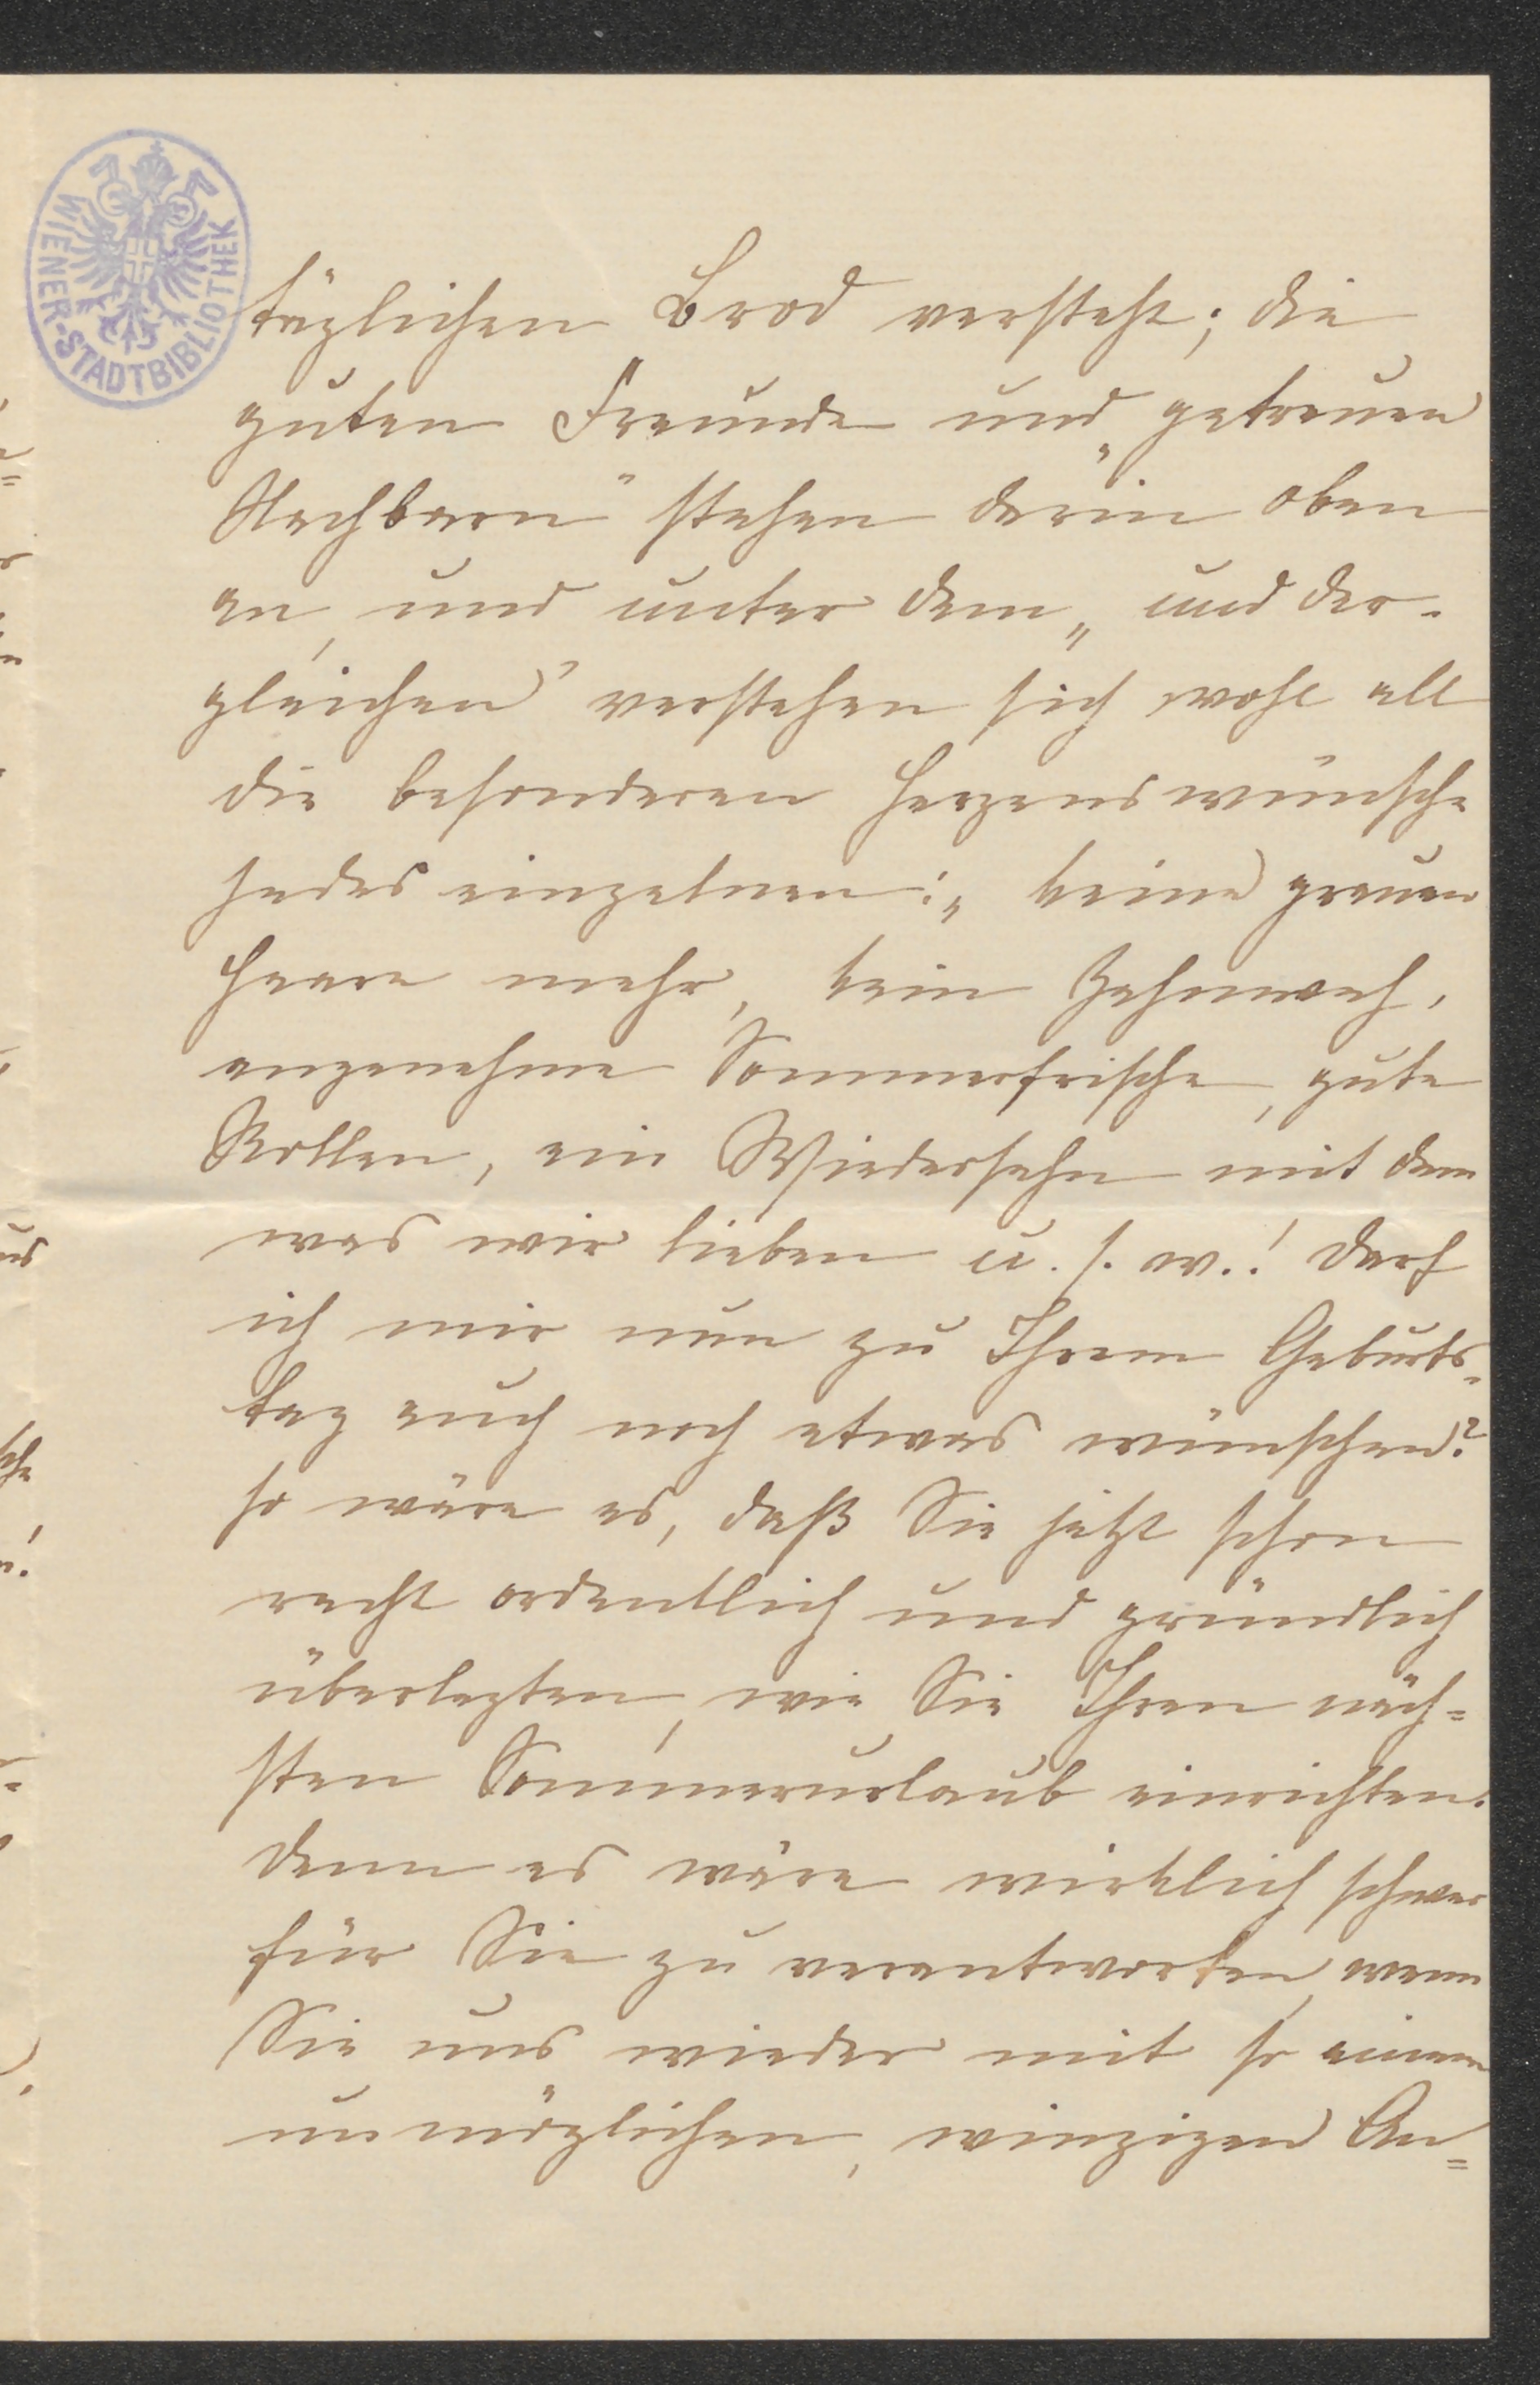 WIENER-STADTBIBLIOTHEK
täglichen Brod versteht; die
guten Freunde und „getreuen
Nachbarn" stehen darin oben
an, und unter dem „und der-
gleichen" verstehen sich wohl all
die besonderen Herzenswünsche
jedes einzelnen: „keine grauen
Haare mehr, kein Zahnweh,
angenehme Sommerfrische, gute
Rollen, ein Wiedersehn mit dem
was wir lieben u. s. w.! Darf
ich mir nun zu Ihrem Geburts-
tag auch noch etwas wünschen?
so wäre es, daß Sie jetzt schon
recht ordentlich und gründlich
überlegten, wie Sie Ihren näch=
sten Sommerurlaub einrichten.
denn es wäre wirklich schwer
für Sie zu verantworten, wenn
Sie uns wieder mit so einem
unmöglichen, winzigen An=